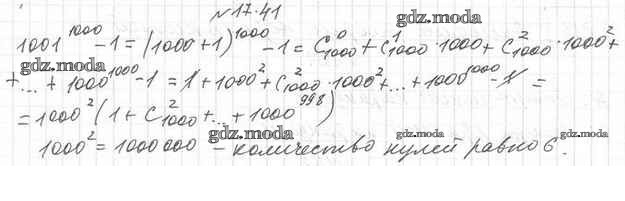 №17.41
gdz.moda
1001^1000 - 1 = (1000+1)^1000 - 1 = C^0_1000 + C^1_1000 · 1000 + C^2_1000 · 1000^2 +
gdz.moda
+ ... + 1000^1000 - 1 = 1 + 1000^2 + C^2_1000 · 1000^2 + ... + 1000^1000 - 1 =
= 1000^2 (1 + C^2_1000 + ... + 1000^998)
gdz.moda gdz.moda gdz.moda
1000^2 = 1000 000 – количество нулей равно 6.